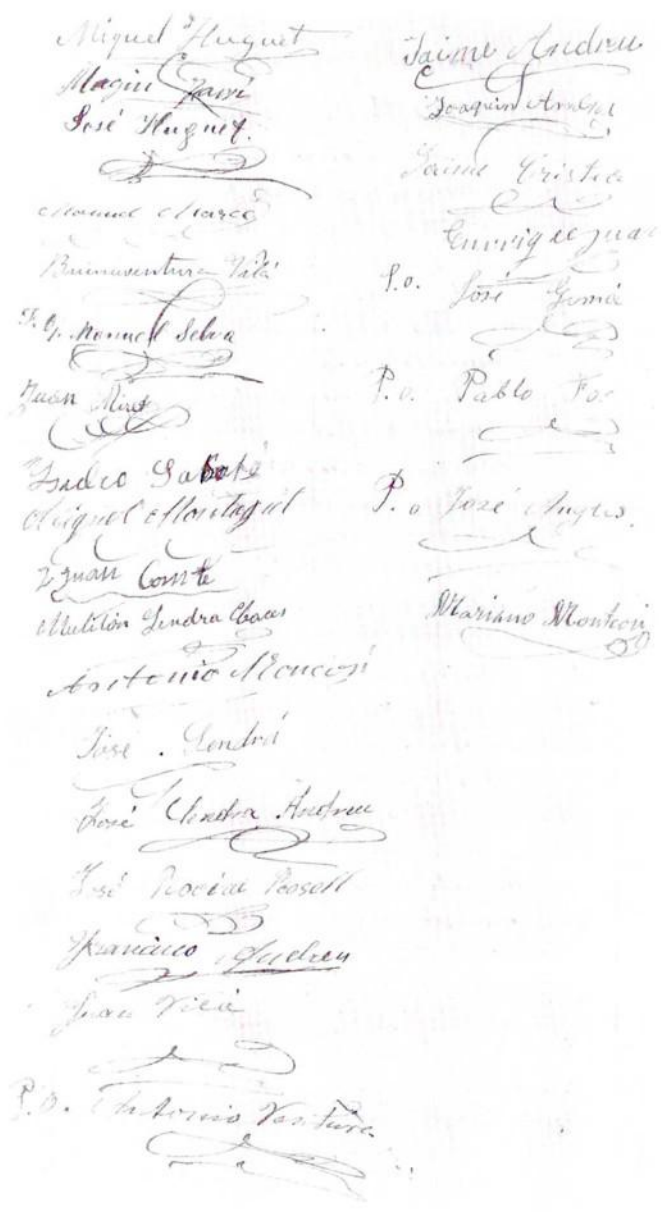 Miguel Huguet
Magin
José Huguet.
Manuel Marco
Buenaventura Vilá
P. O. Manuel Selva
Juan Miret
Isidro Sabaté
Miguel Montagut
Juan Comte
Melitón Lendra
Antonio Moncosí
José Lendrá
José Lendra Andreu
José Rosell
Francisco Andreu
Juan Vilá
P. O. Antonio Ventura
Jaime Andreu
Joaquin
Jaime
Enrique Juan
P. o. José
P. o. Pablo
P. o José Angles.
Mariano